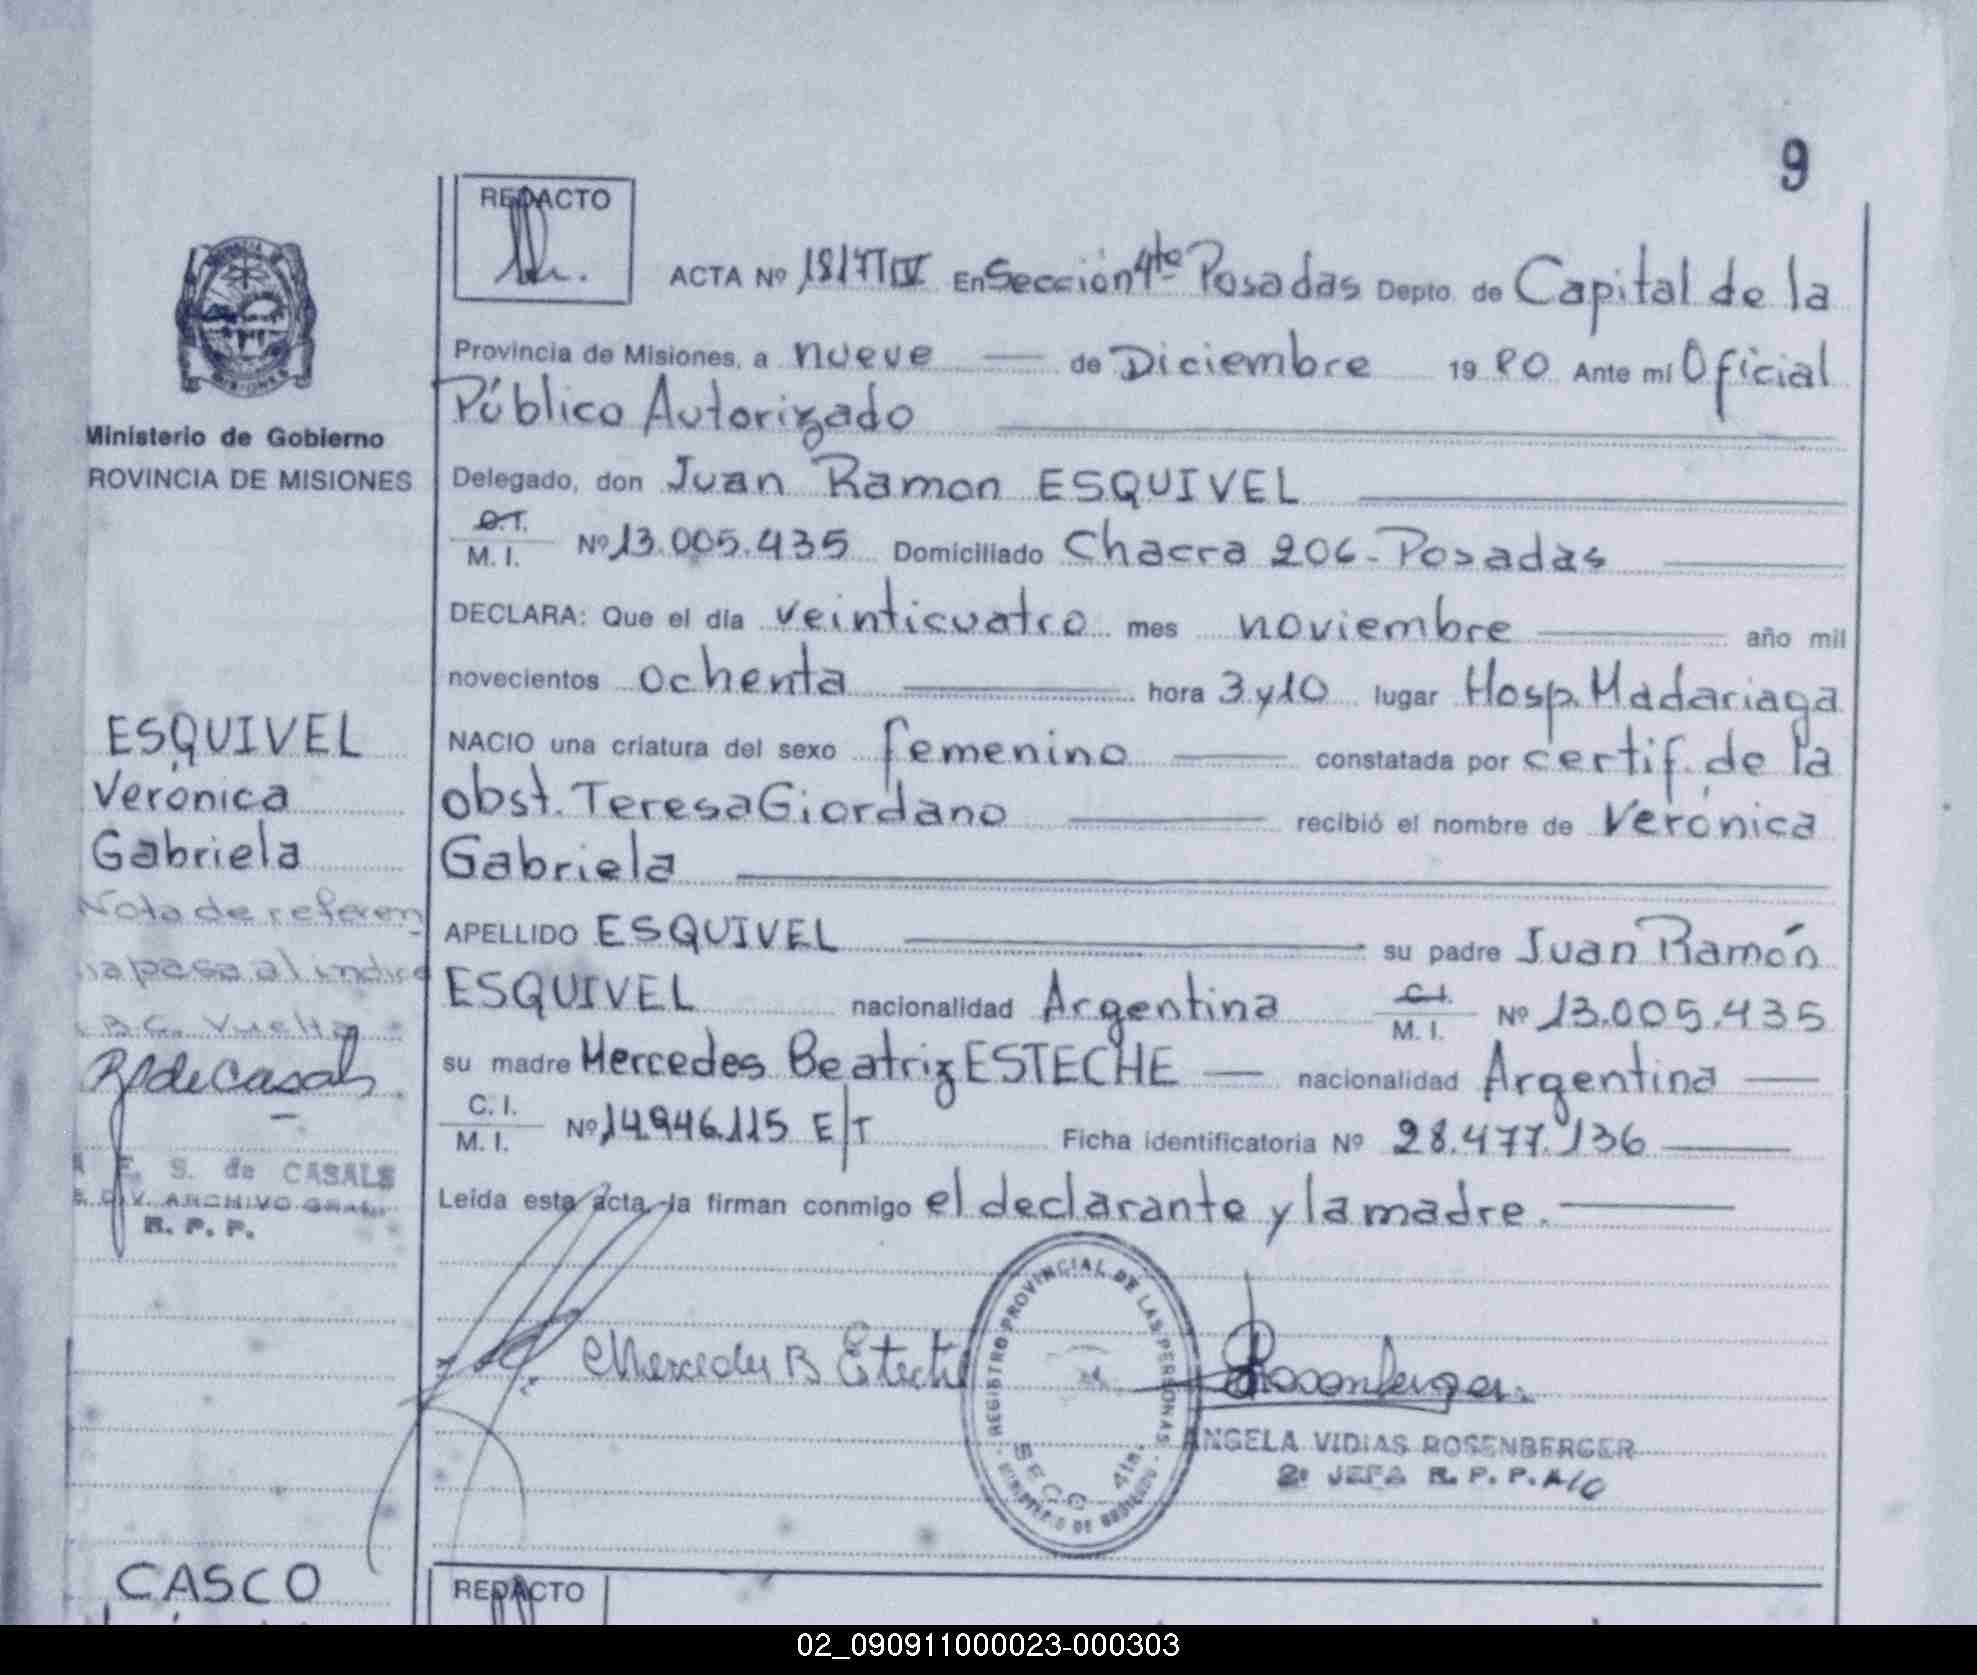 9
REDACTO
ACTA Nº 1817 T IV En Sección 4ta Posadas Depto. de Capital de la
Provincia de Misiones, a nueve — de Diciembre 19 80 Ante mí Oficial
Público Autorizado
Ministerio de Gobierno
ROVINCIA DE MISIONES
Delegado, don Juan Ramon ESQUIVEL
C.I.
M. I. Nº 13.005.435 Domiciliado Chacra 206 - Posadas
DECLARA: Que el día veinticuatro mes noviembre año mil
novecientos ochenta hora 3 y 10 lugar Hosp. Madariaga
NACIO una criatura del sexo femenino constatada por certif. de la
obst. Teresa Giordano recibió el nombre de Verónica
Gabriela
APELLIDO ESQUIVEL su padre Juan Ramón
ESQUIVEL nacionalidad Argentina C.I.
M. I. Nº 13.005.435
su madre Mercedes Beatriz ESTECHE — nacionalidad Argentina —
C. I.
M. I. Nº 14.946.115 E/T Ficha identificatoria Nº 28.477.136
Leída esta acta, la firman conmigo el declarante y la madre.
ESQUIVEL
Verónica
Gabriela
Nota de referen-
cia pasa al indice
Vuelta
R de Casals
S. de CASALS
DIV. ARCHIVO GRAL.
R. P. P.
Mercedes B Esteche
REGISTRO PROVINCIAL DE LAS PERSONAS
SECC. 4ta.
MINISTERIO DE GOBIERNO
Rosenberger
ANGELA VIDIAS ROSENBERGER
2º JEFA R. P. P. A/C
CASCO
REDACTO
02_090911000023-000303